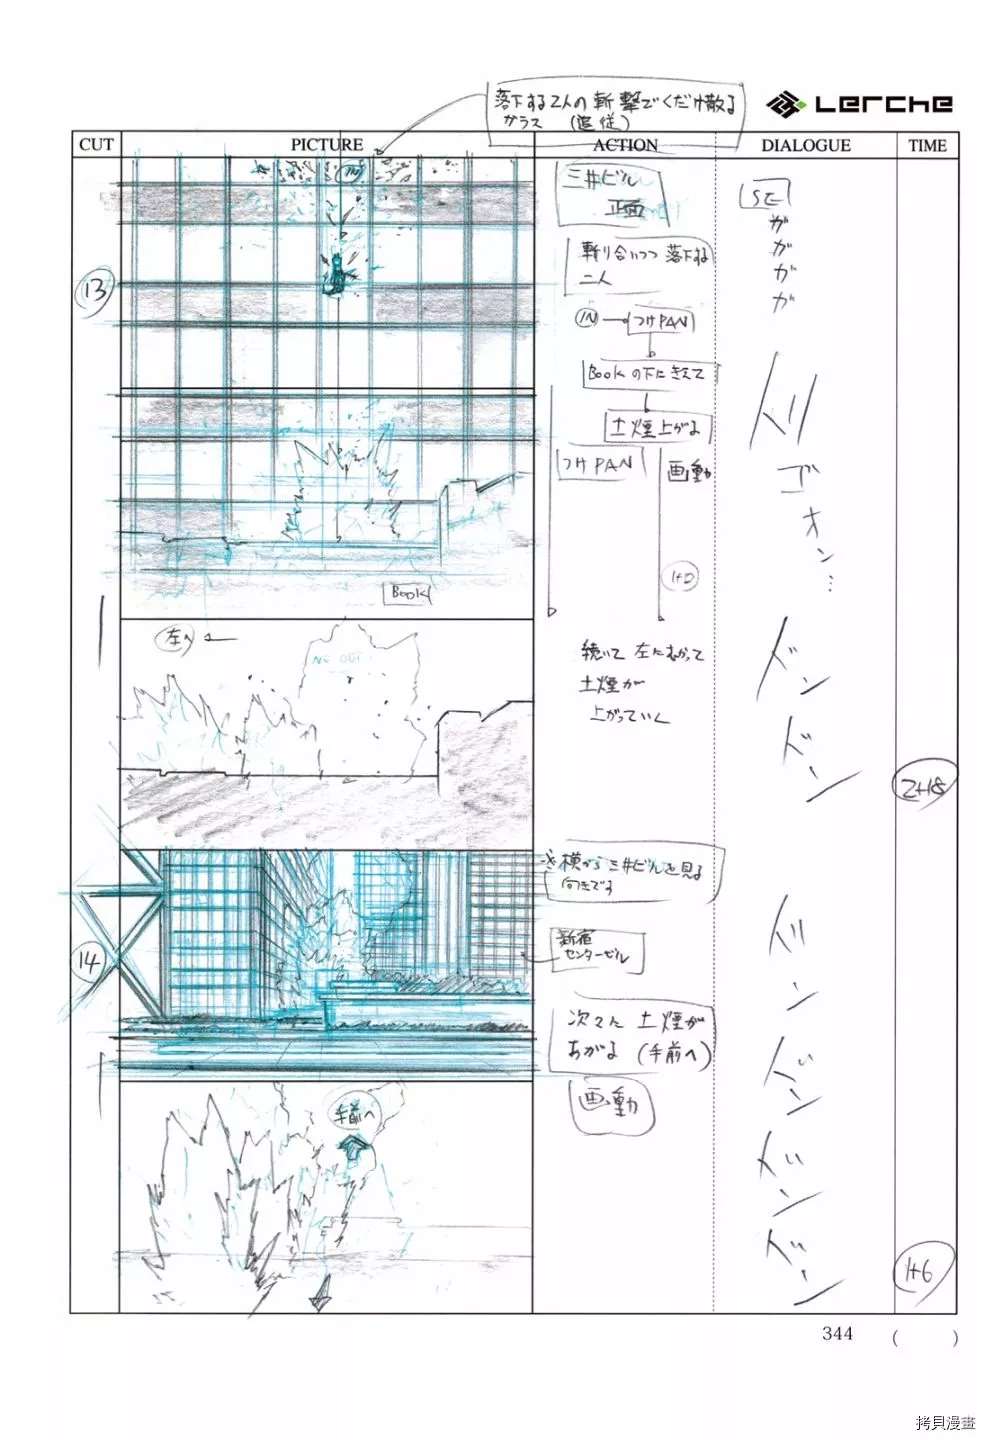 落下する2人の斬撃でくだけ散る
ガラス (追従)
Lerche
CUT
PICTURE
ACTION
DIALOGUE
TIME
13
IN
三井ビル
正面
斬り合いつつ落下する
二人
IN
つけPAN
Bookの下にきえて
土煙上がる
つけPAN
画動
1+0
BOOK
SE
ガ
ガ
ガ
ガ
ゴ
オ
ン…
左へ
NC OUT
続いて左にむかって
土煙が
上がっていく
ドン
ドン
2+18
14
横から三井ビルを見る
向きです
新宿
センタービル
次々に土煙が
あがる (手前へ)
画動
手前へ
ドン
ドン
ドン
ドン
1+6
344
( )
拷貝漫畫